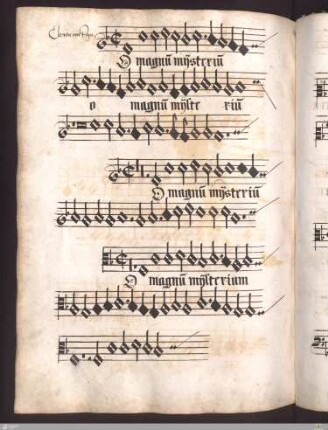 O magnū mysteriū
o magnū myste riū
O magnū mysteriū
O magnū mysterium